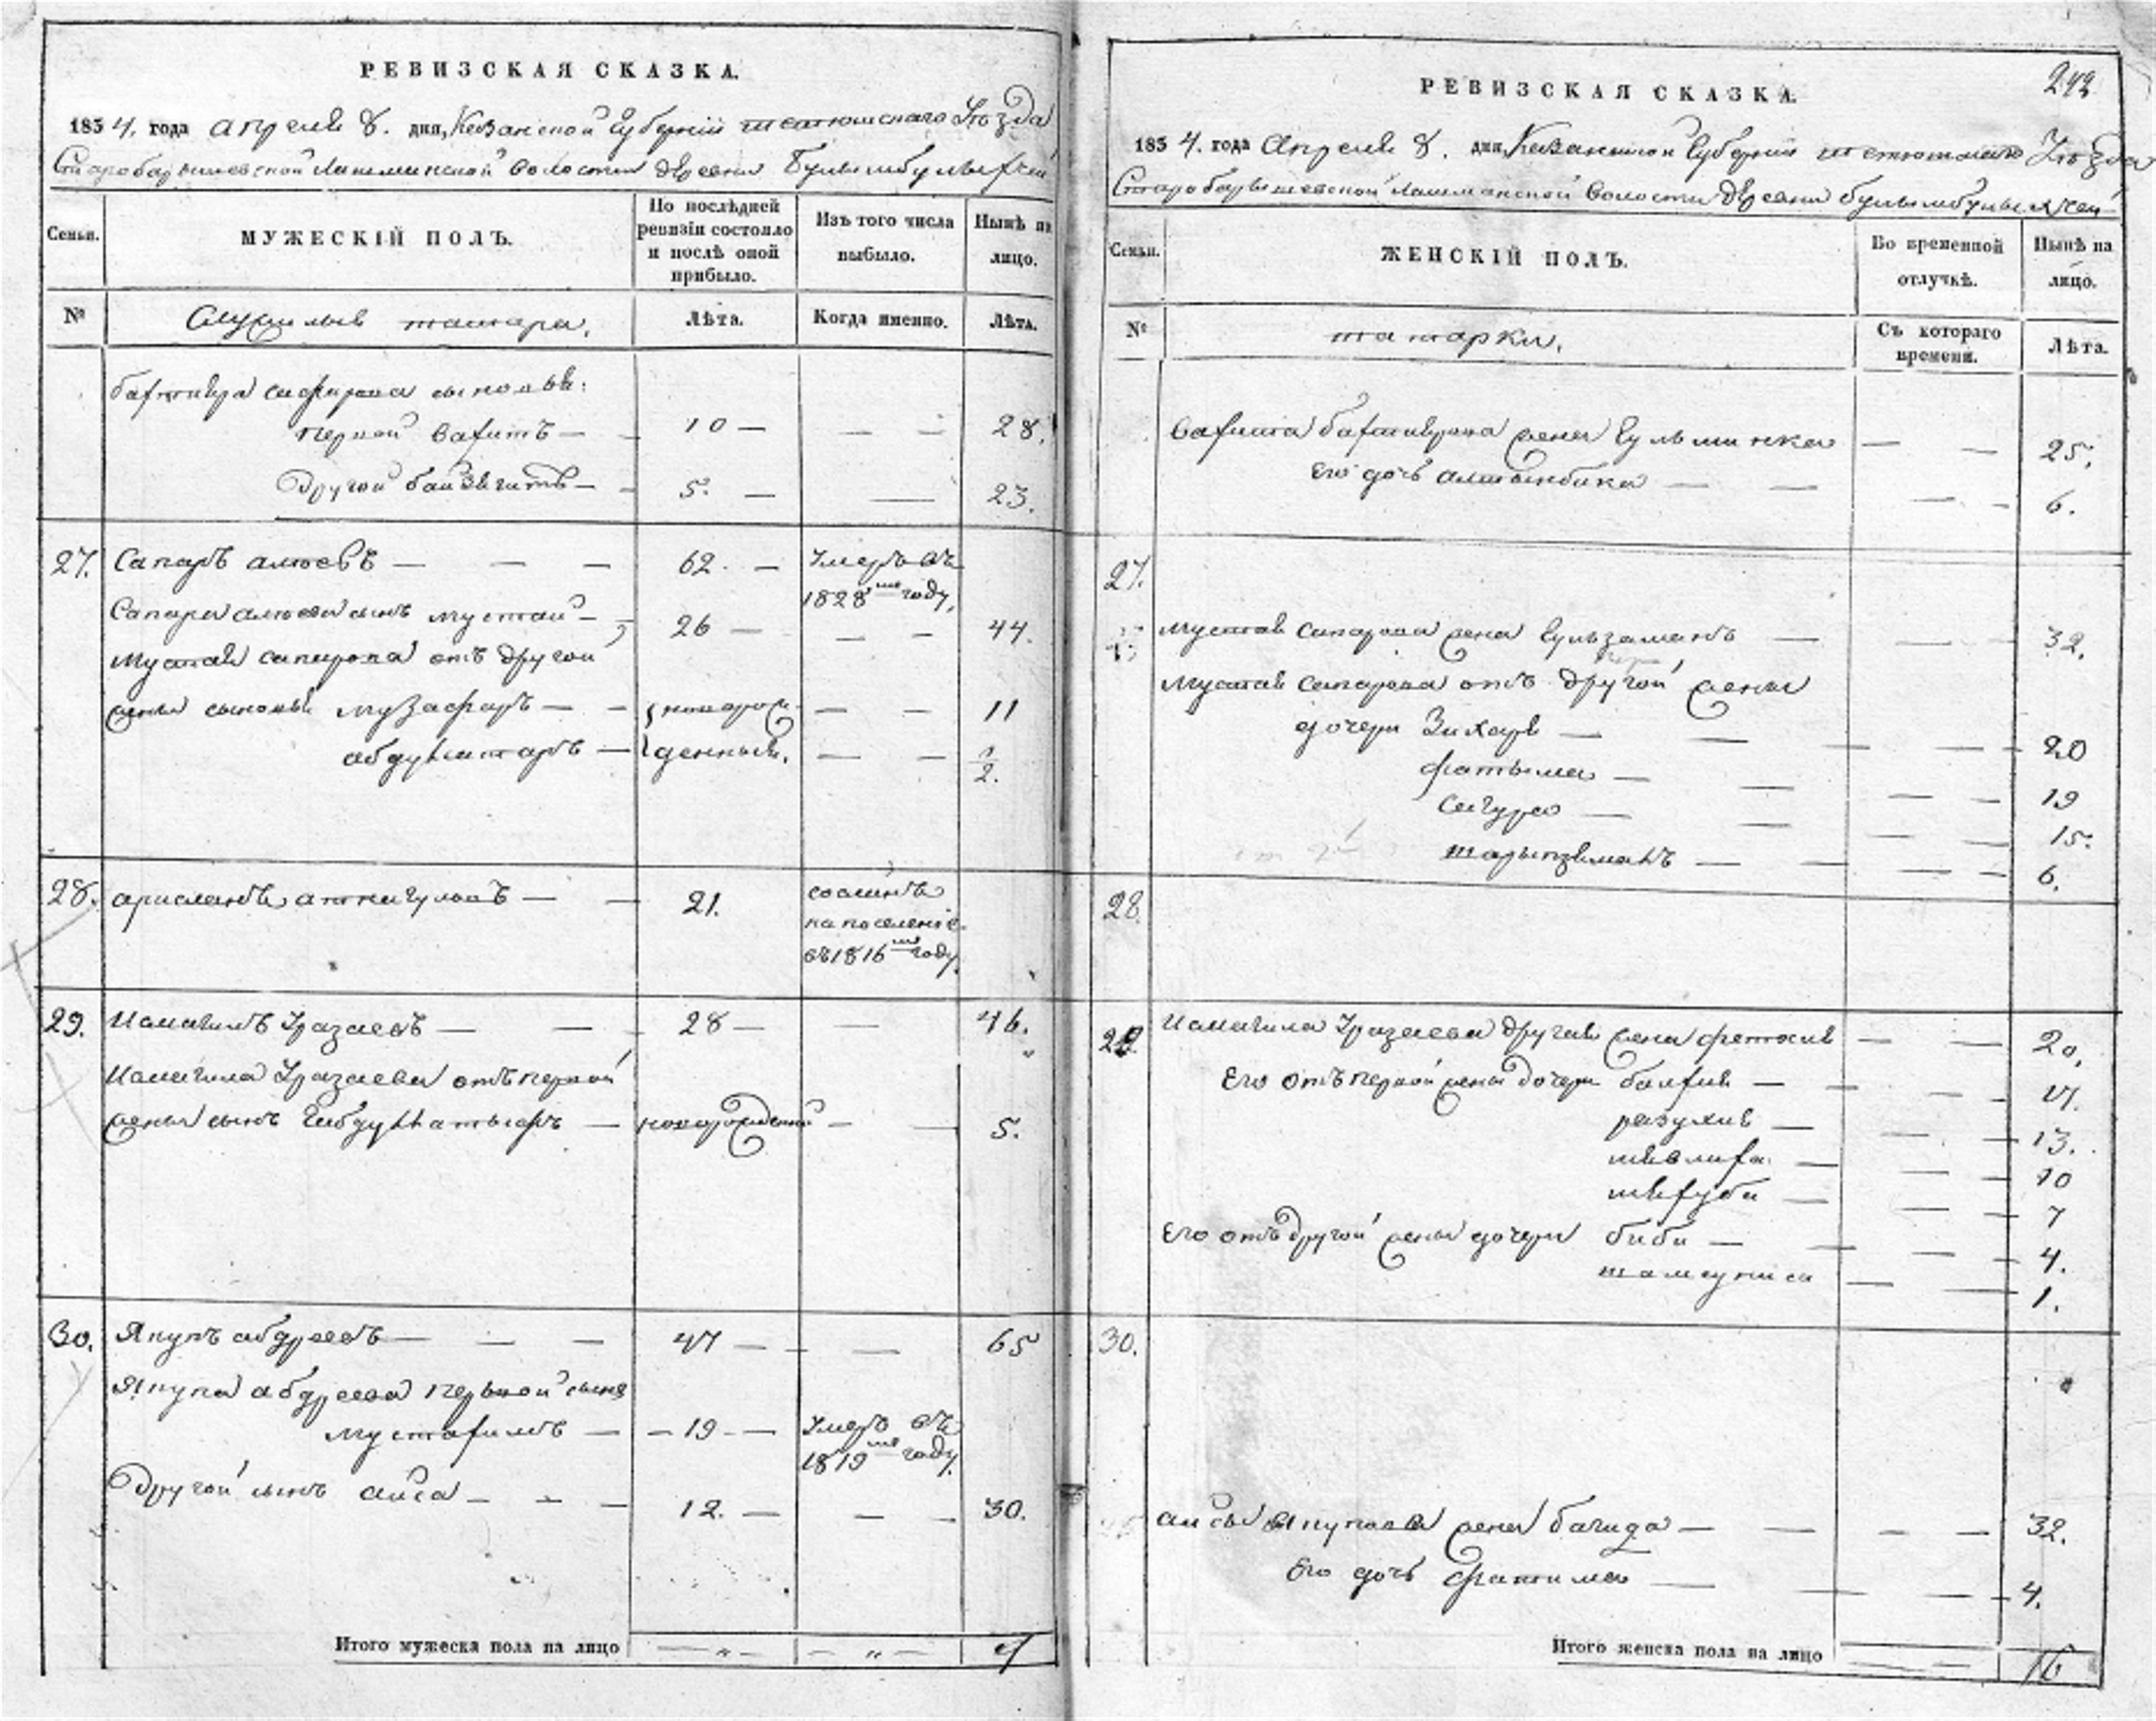 РЕВИЗСКАЯ СКАЗКА.
1834. года апреля 8. дня, Казанской Губернии тетюшскаго Уѣзда
Старобарышевской Лашманской волости деревни
Семьи.
МУЖЕСКІЙ ПОЛЪ.
По послѣдней ревизіи состояло и послѣ оной прибыло.
Изъ того числа выбыло.
Нынѣ на лицо.
№
Служилыя татара.
Лѣта.
Когда именно.
Лѣта.
сыновья:
первой Вахитъ — 10 — — — 28.
Другой — 5. — — 23.
27. Сапаръ алюевъ — — — 62. — Умеръ въ
1828мъ году,
Сапара алюева сынъ мустай — 26 — — — 44.
Мустая сапарова отъ другой
жены сыновья музафаръ — — новорож- — — 11
абдулсатаръ — денныя. — — 1/2.
28. арисланъ аткигуловъ — — 21. сосланъ
на поселеніе
въ 1816мъ году.
29. Исмагилъ Уразаевъ — — 28 — — 46.
Исмагила Уразаева отъ первой
жены сынъ — новорожденной — — 5.
30. Якупъ абдреевъ — — — 47 — — — 65
Якупа абдреева первой сынъ
мустакимъ — — 19 — — Умеръ въ
1819мъ году.
Другой сынъ айса — — — 12. — — — 30.
Итого мужеска пола на лицо — „ — — „ — 9
242
РЕВИЗСКАЯ СКАЗКА.
1834. года Апреля 8. дня, Казанской Губерніи тетюшскаго Уѣзда
Старобарышевской Лашманской волости Деревни
Семьи.
ЖЕНСКІЙ ПОЛЪ.
Во временной отлучкѣ.
Нынѣ на лицо.
№
татарки.
Съ котораго времени.
Лѣта.
Вахита жена — — 25.
Его дочь алтынбика — — — — 6.
27.
Мустая сапарова жена Гульзаманъ — — — 32.
Мустая сапарова отъ другой жены
дочери — — — — — 20
фатыма — — — — 19
сагура — — — — 15.
— — — — 6.
28.
29. Исмагила Уразаева другая жена — — 20.
Его отъ первой жены дочери — — — — 17.
— — — 13.
— — — 10
— — — 7
Его отъ другой жены дочери биби — — — — 4.
— — 1.
30.
айсы Якупова жена багида — — — — 32.
Его дочь фатима — — — 4.
Итого женска пола на лицо — — 16